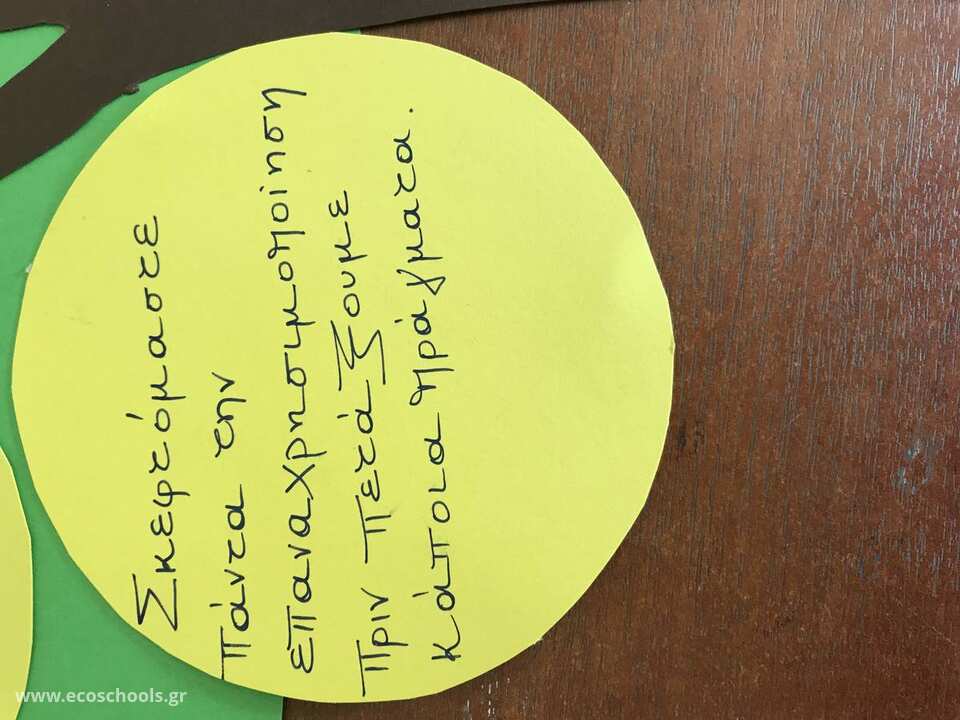 Σκεφτόμαστε
πάντα την
επαναχρησιμοποίηση
πριν πετάξουμε
κάποια πράγματα.
www.ecoschools.gr